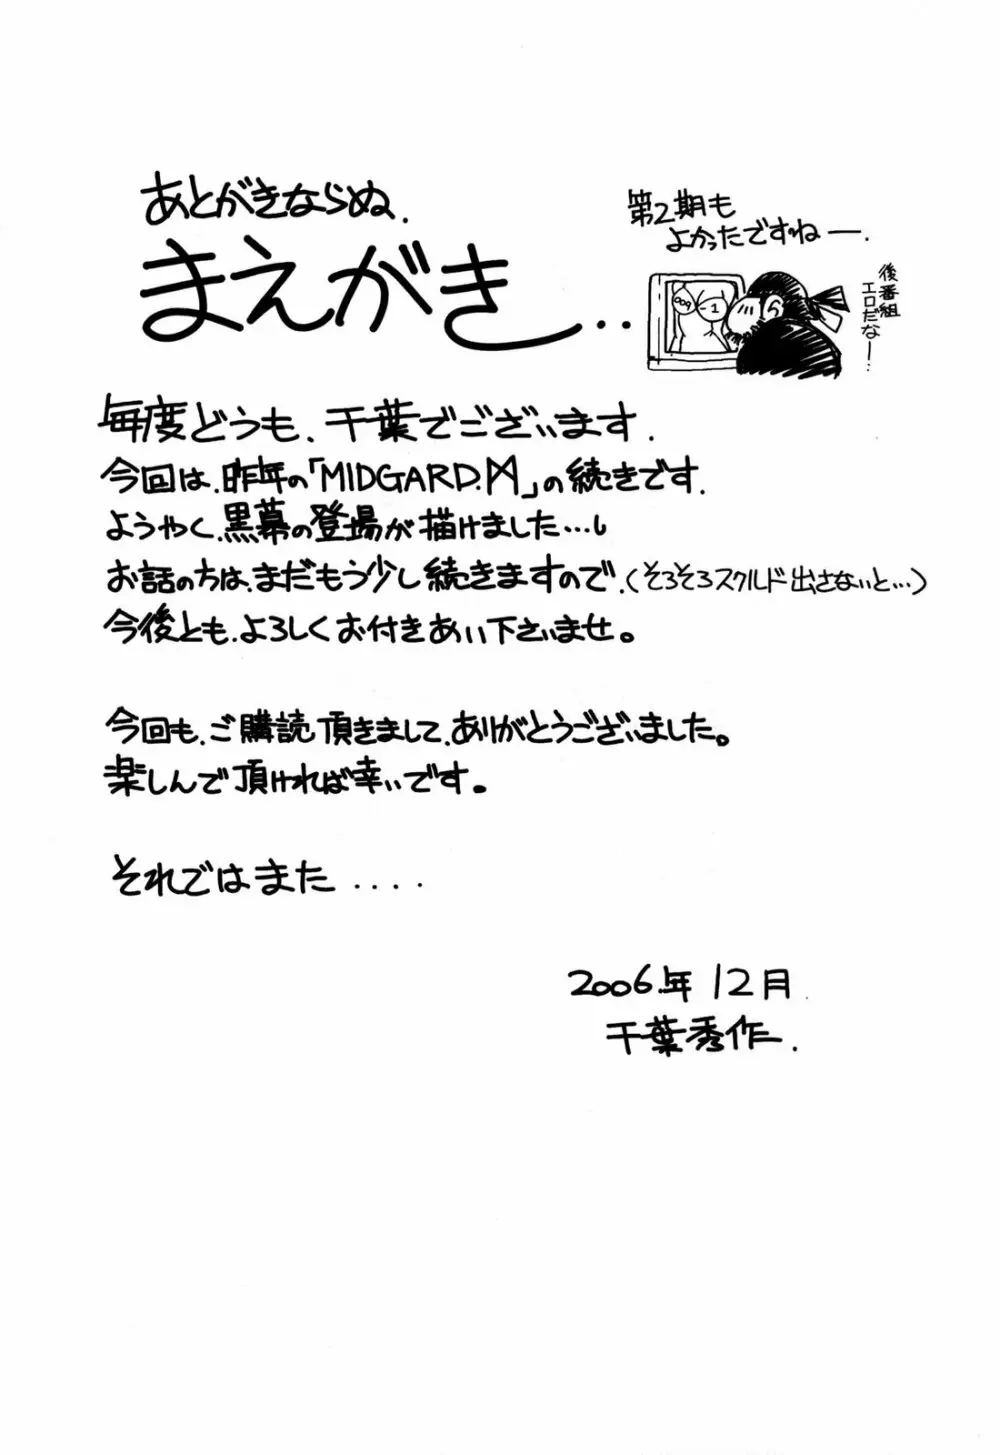 あとがきならぬ、
まえがき‥
第2期も
よかったですねー.
後番組
エロだなー‥
009
-1
毎度どうも、千葉でございます.
今回は、昨年の「MIDGARD.ᛞ」の続きです.
ようやく、黒幕の登場が描けました…し
お話のちは、まだもう少し続きますので、(そろそろスクルド出さないと…)
今後とも、よろしくお付きあい下さいませ。
今回も、ご購読頂きまして、ありがとうございました。
楽しんで頂ければ幸いです。
それではまた....
2006年12月
千葉秀作.